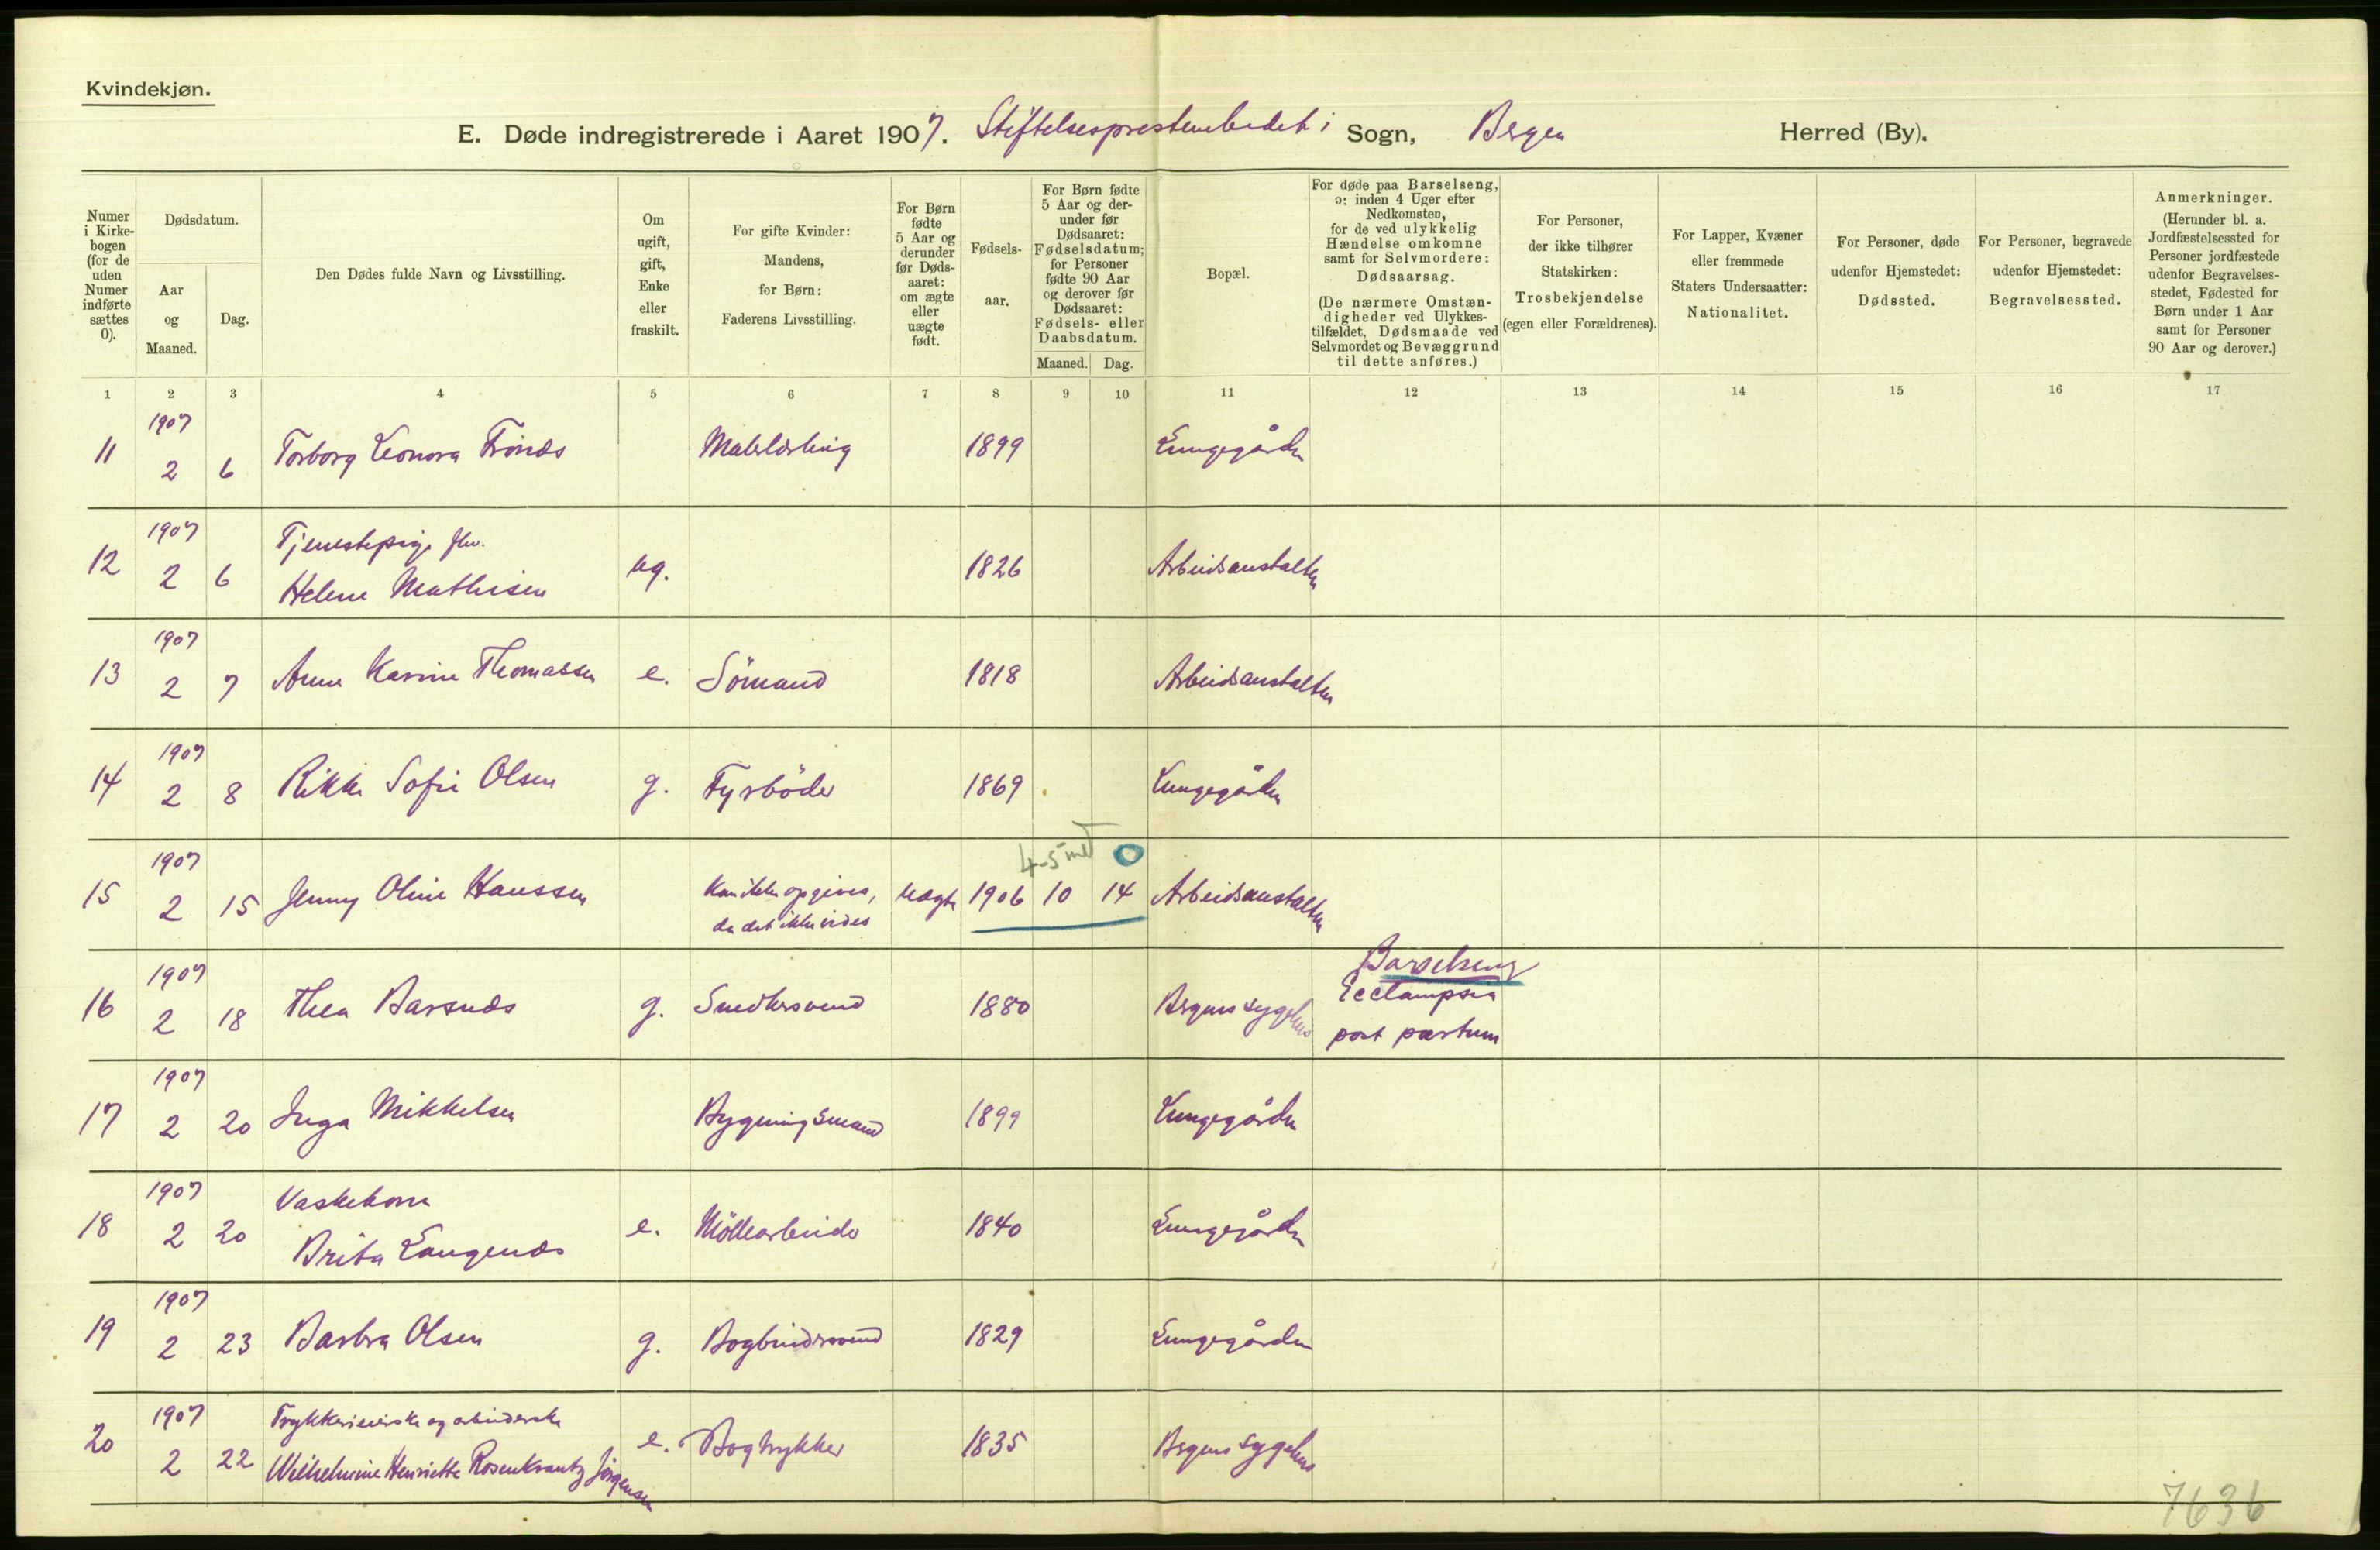 Kvindekjøn.
E. Døde indregistrerede i Aaret 1907. Stiftelsesprestembedet i Sogn, Bergen Herred (By).
Numer i Kirkebogen (for de uden Numer indførte sættes 0).
Dødsdatum.
Aar og Maaned.
Dag.
Den Dødes fulde Navn og Livsstilling.
Om ugift, gift, Enke eller fraskilt.
For gifte Kvinder: Mandens, for Børn: Faderens Livsstilling.
For Børn fødte 5 Aar og derunder før Døds-aaret: om ægte eller uægte født.
Fødsels-aar.
For Børn fødte 5 Aar og der-under før Dødsaaret: Fødselsdatum; for Personer fødte 90 Aar og derover før Dødsaaret: Fødsels- eller Daabsdatum.
Maaned. Dag.
Bopæl.
For døde paa Barselseng, ɔ: inden 4 Uger efter Nedkomsten, for de ved ulykkelig Hændelse omkomne samt for Selvmordere: Dødsaarsag. (De nærmere Omstæn-digheder ved Ulykkes-tilfældet, Dødsmaade ved Selvmordet og Bevæggrund til dette anføres.)
For Personer, der ikke tilhører Statskirken: Trosbekjendelse (egen eller Forældrenes).
For Lapper, Kvæner eller fremmede Staters Undersaatter: Nationalitet.
For Personer, døde udenfor Hjemstedet: Dødssted.
For Personer, begravede udenfor Hjemstedet: Begravelsessted.
Anmerkninger. (Herunder bl. a. Jordfæstelsessted for Personer jordfæstede udenfor Begravelses-stedet, Fødested for Børn under 1 Aar samt for Personer 90 Aar og derover.)
1 2 3 4 5 6 7 8 9 10 11 12 13 14 15 16 17
1907
11 2 6 Torborg Leonora Trönæs Malerlærling 1899 Lungegården
1907 Tjenestepige fhv.
12 2 6 Helene Mathisen ug. 1826 Arbeidsanstalten
1907
13 2 7 Anne Karine Thomassen e. Sömand 1818 Arbeidsanstalten
1907
14 2 8 Rikke Sofie Olsen g. Fyrböder 1869 Lungegården
1907 4-5 md 0
15 2 15 Jenny Oline Hanssen Kan ikke opgives, uægte 1906 10 14 Arbeidsanstalten
da det ikke vides
1907 Barselseng
16 2 18 Thea Barsnæs g. Snedkersvend 1880 Bergens sygehus Ecclampsia
post partum
1907
17 2 20 Inga Mikkelsen Bygningsmand 1899 Lungegården
1907 Vaskekone
18 2 20 Brita Langenæs e. Möllearbeider 1840 Lungegården
1907
19 2 23 Barbra Olsen g. Bogbindersvend 1829 Lungegården
1907 Trykkerieierske og arbeiderske
20 2 22 Wilhelmine Henriette Rosenkrantz Jörgensen e. Bogtrykker 1835 Bergens sygehus
7636